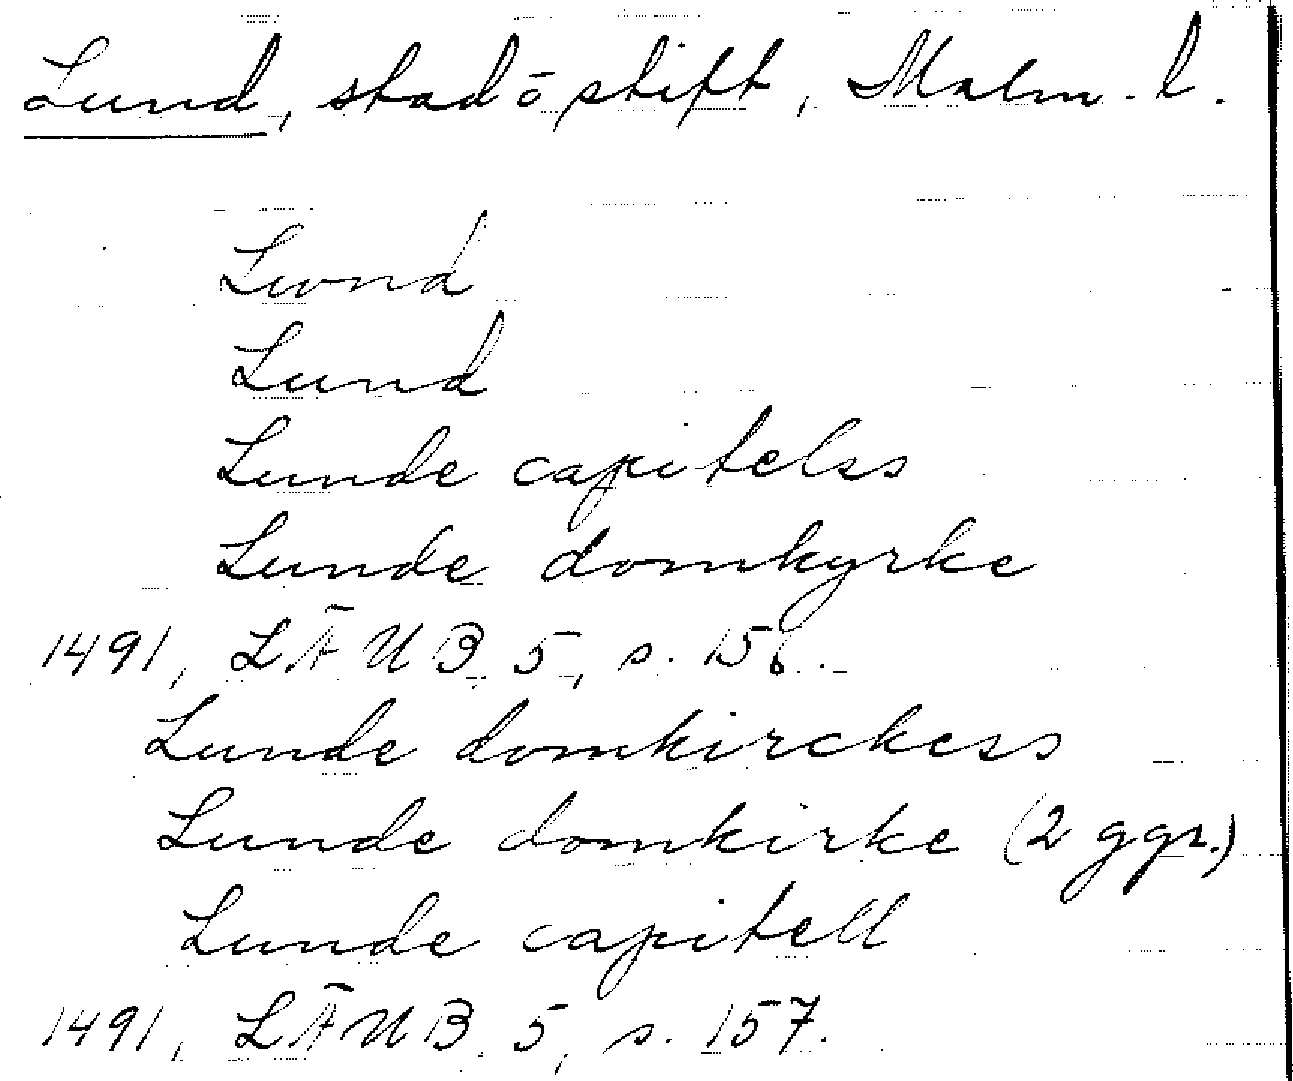 Lund, stad o stift, Malm. l.
Lwnd
Lund
Lunde capitelss
Lunde domkyrke
1491, LÄUB 5, s. 156.
Lunde domkirckess
Lunde domkirke (2 ggr.)
Lunde capitell
1491, LÄUB 5, s. 157.